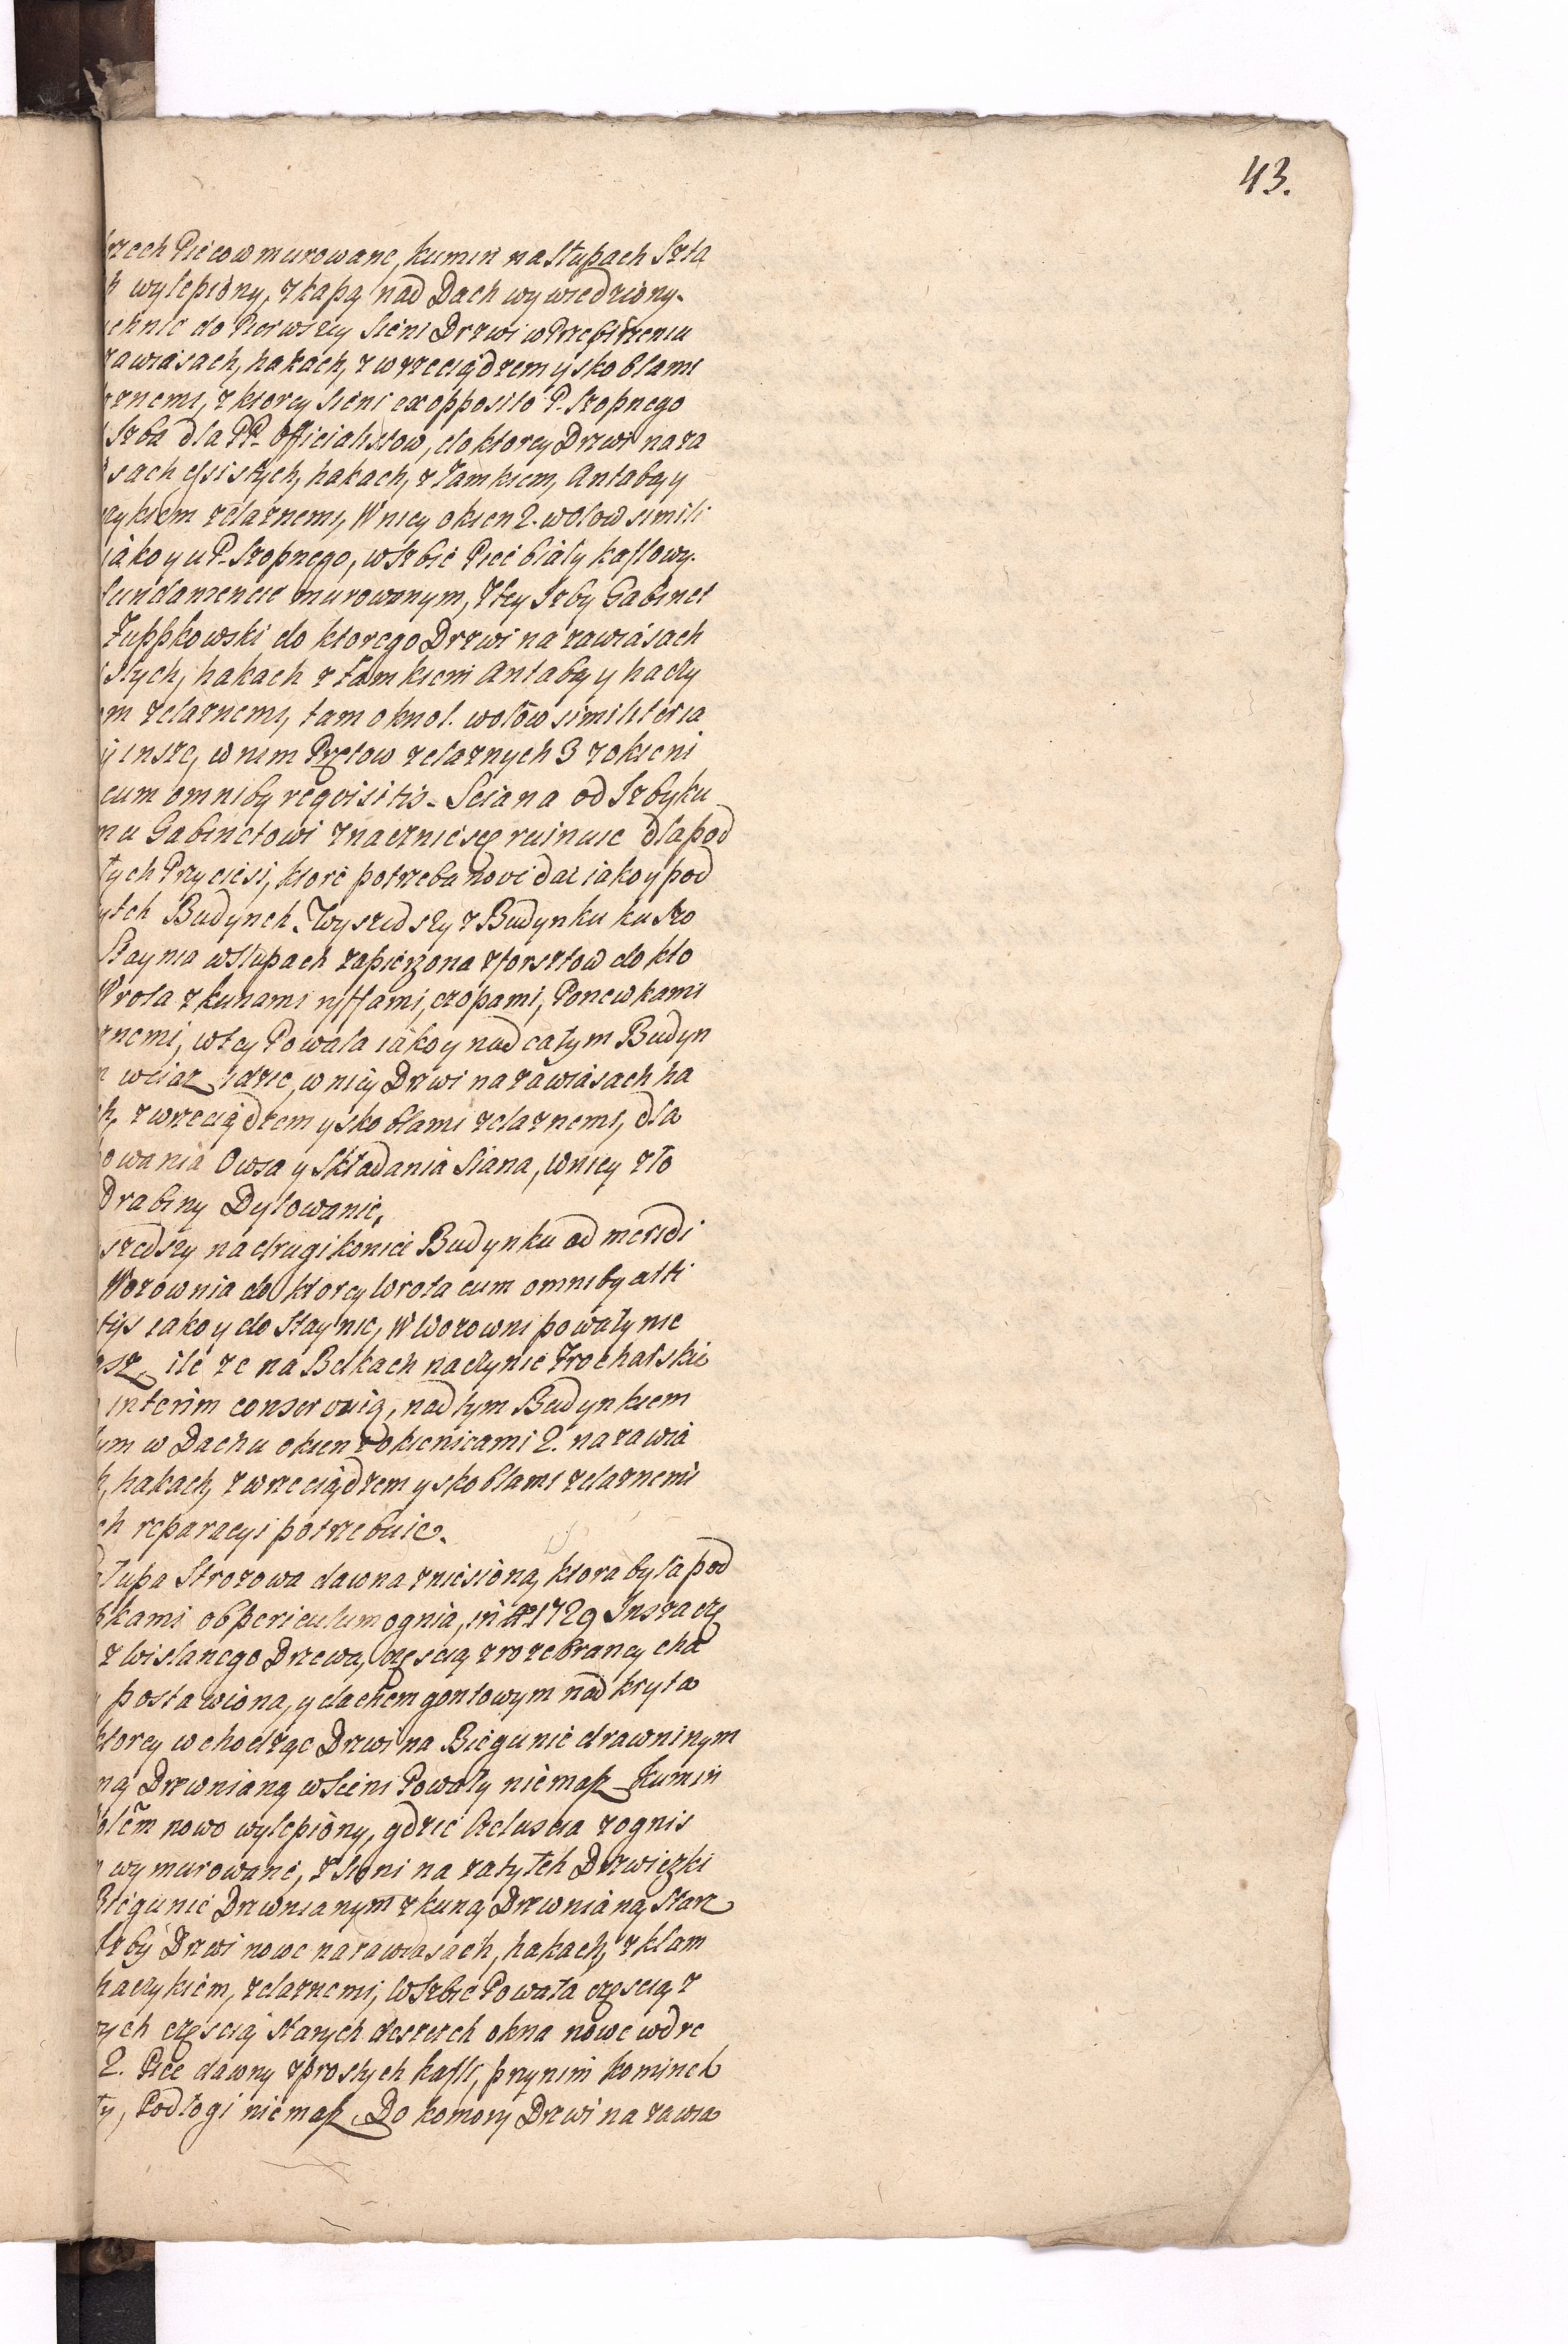 43.
rzech Piecow murowane, kumin na Słupach Szta
h wylepiony, z kapą nad Dach wywiedziony.
uchnie do Pierwszey Sieni Drzwi w Przepierzeniu
zawiasach, hakach, z wrzeciądzem y skoblami
znemi, z ktorey Sieni ex opposito P. Stopnego
Izba dla PP. Officialistow, do ktorey Drzwi na za
sach essistych, hakach, z Zamkiem, Antabą y
czykiem zelaznemi, W niey okien 2. w ołow simili
iako y u P. Stopnego, w Izbie Piec biały kaflowy.
fundamencie murowanym, Z tey Izby Gabinet
Zuppkowski do ktorego Drzwi na zawiasach
istych, hakach z Zamkiem Antabą y haczy
em zelaznemi, tam okno 1. w ołow similiter ia
y insze, w nim Prętow zelaznych 3 z okieni
cum omniby reqvisitis. Sciana od Izby ku
mu Gabinetowi znacznie się ruinuie dla pod
łych Przyciesi, ktore potrzeba nowe dac iako y pod
tych Budynek. Wyszedszy z Budynku ku Sto
Staynia w Słupach zapierzona z forsztow do kto
Wrota z kunami ryffami, czopami, Ponewkami
znemi, w tey Powała iako y nad całym Budyn
wciąz idzie, w niey Drzwi na zawiasach ha
ch, z wrzeciądzem y skoblami zelaznemi, dla
owania Owsa y Składania Siana, w niey zło
Drabiny Dylowanie,
szedszy na drugi koniec Budynku od meridi
Wozownia do ktorey Wrota cum omniby atti
tys iako y do Staynie, W Wozowni powały nie
asz, ile ze na Belkach naczynie Trochalskie
interim conserwuią, nad tym Budynkiem
łym w Dachu okien z okienicami 2. na zawia
h, hakach, z wrzeciądzem y skoblami zelaznemi
ch reparacyi potrzebuie.
ałupa Strozowa dawna zniesiona, ktora była pod
pkami ob periculum ognia, in Ao 1729 Insza czę
z wislanego Drzewa, częscią z rozebraney cha
postawiona, y dachem gontowym nad kryta
ktorey wchodząc Drzwi na Biegunie drawninym
ną Drzewnianą w Sieni Powały niemasz Kumin
nowo wylepiony, gdzie z ognis
wymurowane, z Sieni na zatyłek Drzwiczki
Biegunie Drzewnianym z kuną Drzewnianą Stare
Izby Drzwi nowe na zawiasach, hakach, z klam
haczykiem, zelaznemi, W Izbie Powała częscią z
wych częscią starych deszczek okna nowe w drz
2. Piec dawny z prostych kafli, przy nim kominek
ty, Podłogi niemasz, Do komory Drzwi na zawia